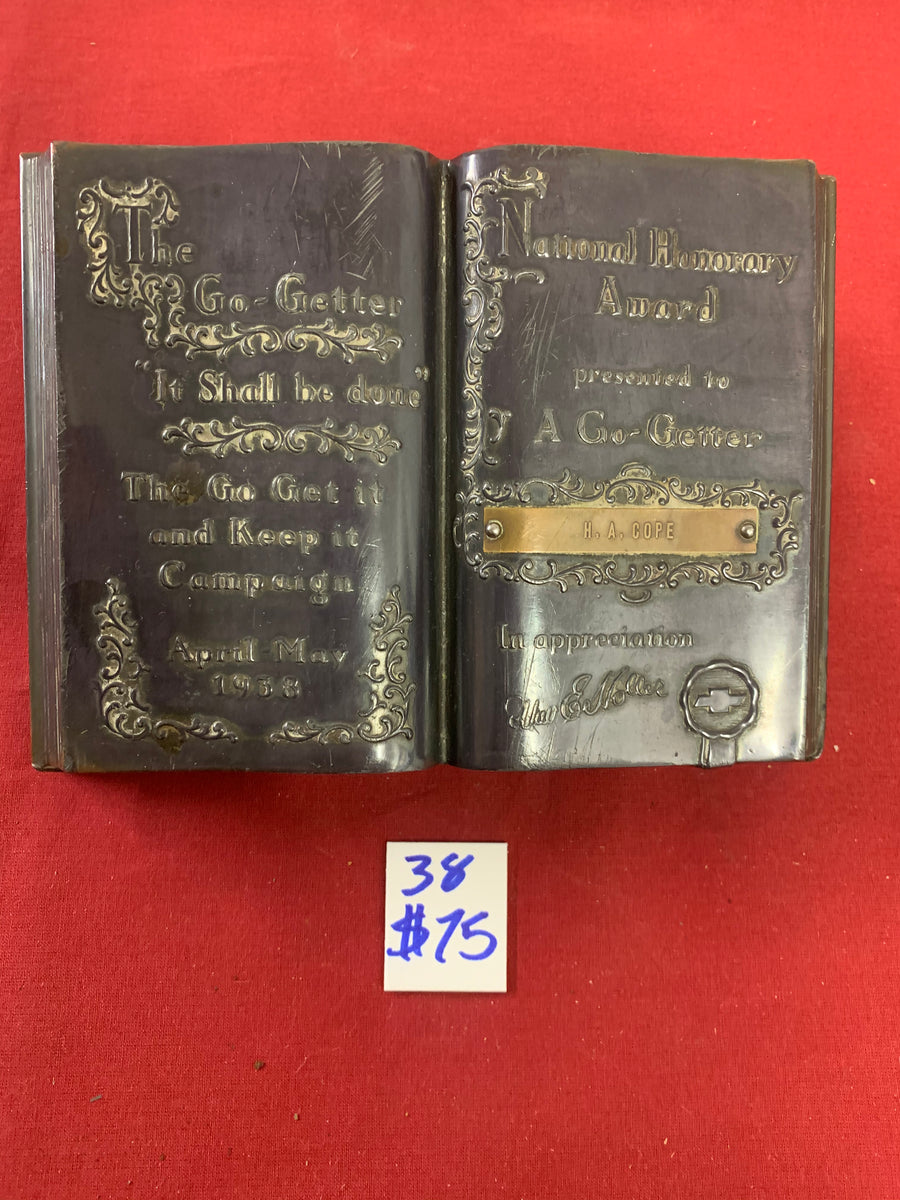 The
Go-Getter
"It Shall be done"
The Go Get it
and Keep it
Campaign
April-May
1938
National Honorary
Award
presented to
A Go-Getter
H. A. COPE
In appreciation
38
$75